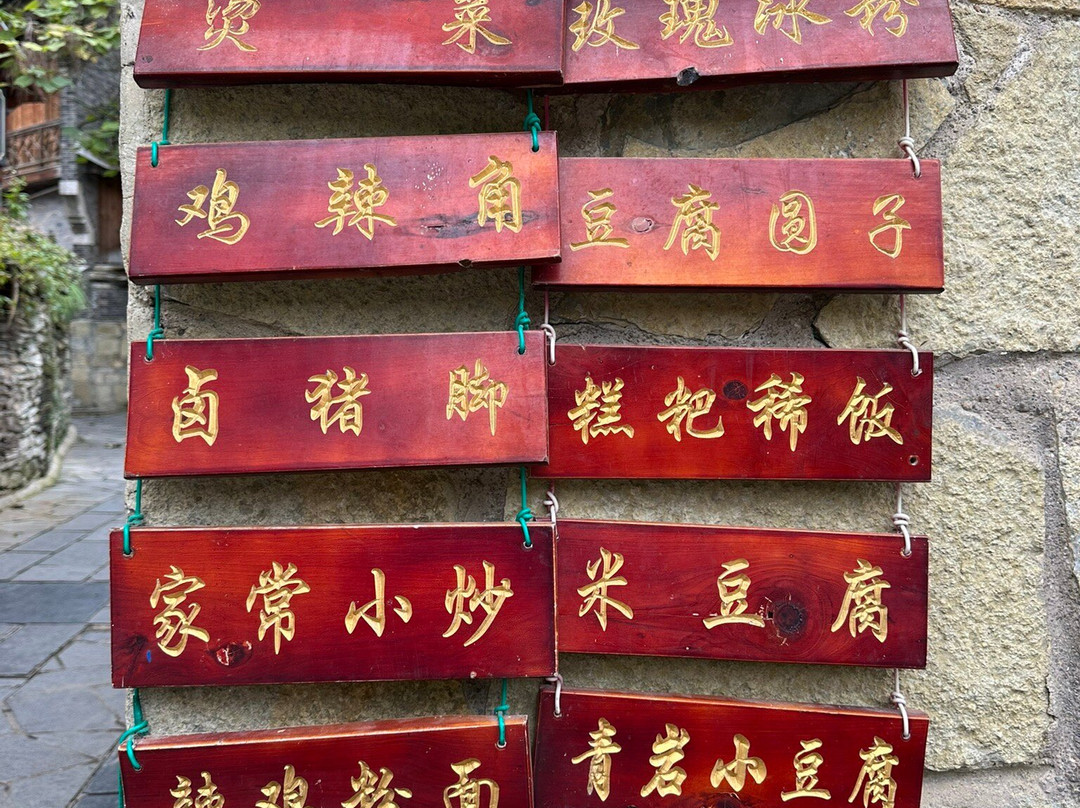 烫菜
玫瑰冰粉
鸡辣角
豆腐圆子
卤猪脚
糕粑稀饭
家常小炒
米豆腐
辣鸡粉面
青岩小豆腐